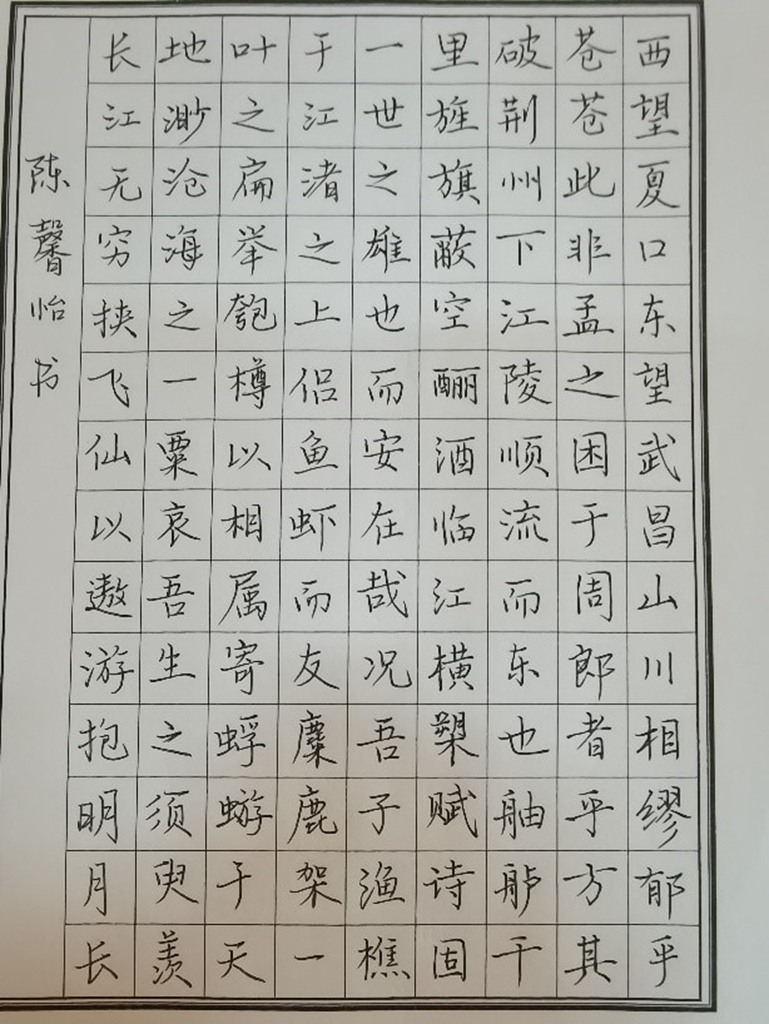 西望夏口东望武昌山川相缪郁乎
苍苍此非孟之困于周郎者乎方其
破荆州下江陵顺流而东也舳舻千
里旌旗蔽空酾酒临江横槊赋诗固
一世之雄也而安在哉况吾子渔樵
于江渚之上侣鱼虾而友麋鹿架一
叶之扁举匏樽以相属寄蜉蝣于天
地渺沧海之一粟哀吾生之须臾羡
长江无穷挟飞仙以遨游抱明月长
陈馨怡书